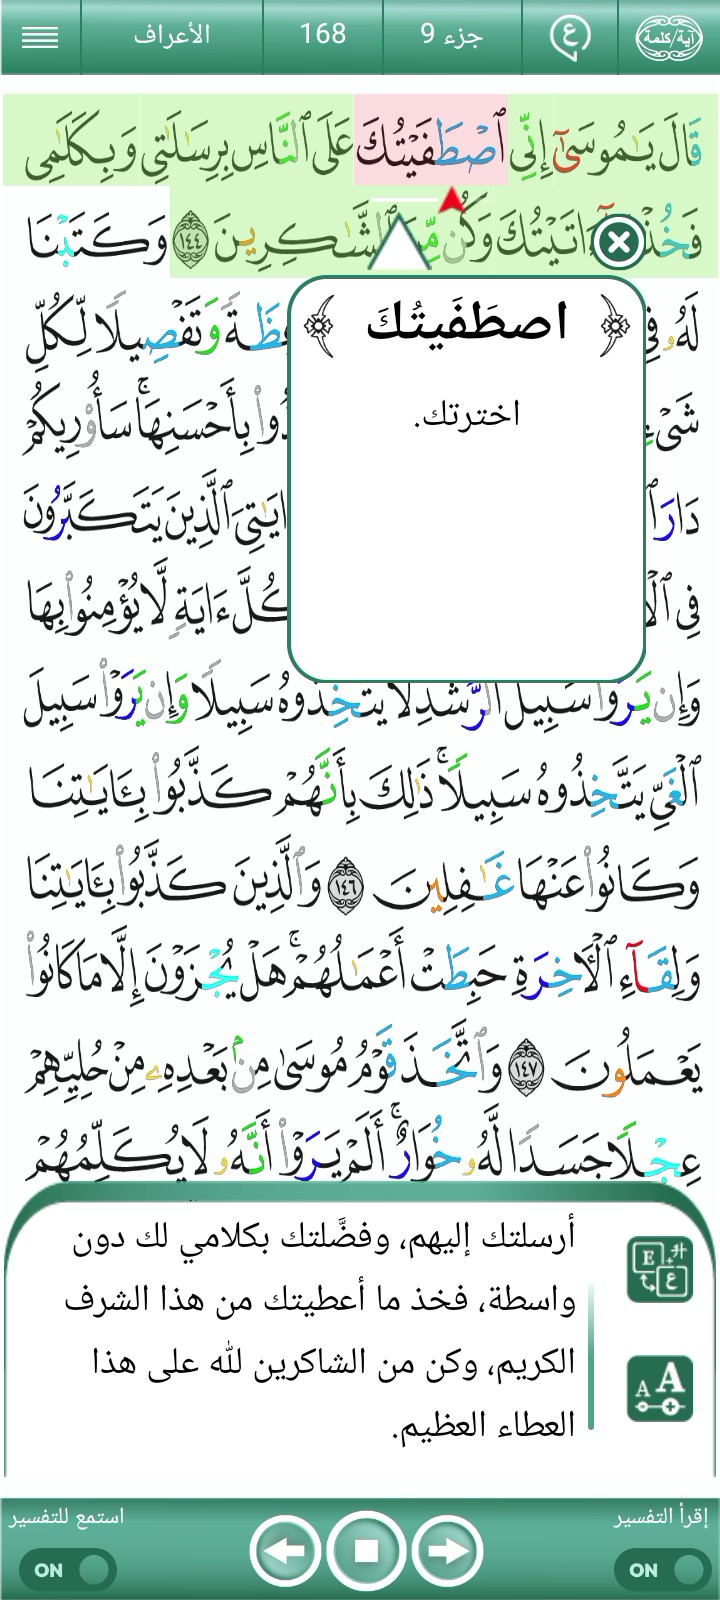 آية/كلمة
ع
جزء 9
168
الأعراف
قَالَ يَـٰمُوسَىٰٓ إِنِّى ٱصْطَفَيْتُكَ عَلَى ٱلنَّاسِ بِرِسَـٰلَـٰتِى وَبِكَلَـٰمِى
فَخُذْ ءَاتَيْتُكَ وَكُن مِّنَ ٱلشَّـٰكِرِينَ ١٤٤ وَكَتَبْنَا
اصطَفَيتُكَ
اخترتك.
لَهُۥ فِى وَتَفْصِيلًا لِّكُلِّ
شَىْءٍ بِأَحْسَنِهَا ۚ سَأُو۟رِيكُمْ
دَارَ ٱلَّذِينَ يَتَكَبَّرُونَ
فِى كُلَّ ءَايَةٍ لَّا يُؤْمِنُوا۟ بِهَا
وَإِن يَرَوْا۟ سَبِيلَ ٱلرُّشْدِ لَا يَتَّخِذُوهُ سَبِيلًا وَإِن يَرَوْا۟ سَبِيلَ
ٱلْغَىِّ يَتَّخِذُوهُ سَبِيلًا ۚ ذَٰلِكَ بِأَنَّهُمْ كَذَّبُوا۟ بِـَٔايَـٰتِنَا
وَكَانُوا۟ عَنْهَا غَـٰفِلِينَ ١٤٦ وَٱلَّذِينَ كَذَّبُوا۟ بِـَٔايَـٰتِنَا
وَلِقَآءِ ٱلْـَٔاخِرَةِ حَبِطَتْ أَعْمَـٰلُهُمْ ۚ هَلْ يُجْزَوْنَ إِلَّا مَا كَانُوا۟
يَعْمَلُونَ ١٤٧ وَٱتَّخَذَ قَوْمُ مُوسَىٰ مِنۢ بَعْدِهِۦ مِنْ حُلِيِّهِمْ
عِجْلًا جَسَدًا لَّهُۥ خُوَارٌ ۚ أَلَمْ يَرَوْا۟ أَنَّهُۥ لَا يُكَلِّمُهُمْ
أرسلتك إليهم، وفضَّلتك بكلامي لك دون
واسطة، فخذ ما أعطيتك من هذا الشرف
الكريم، وكن من الشاكرين لله على هذا
العطاء العظيم.
إقرأ التفسير
استمع للتفسير
ON
ON